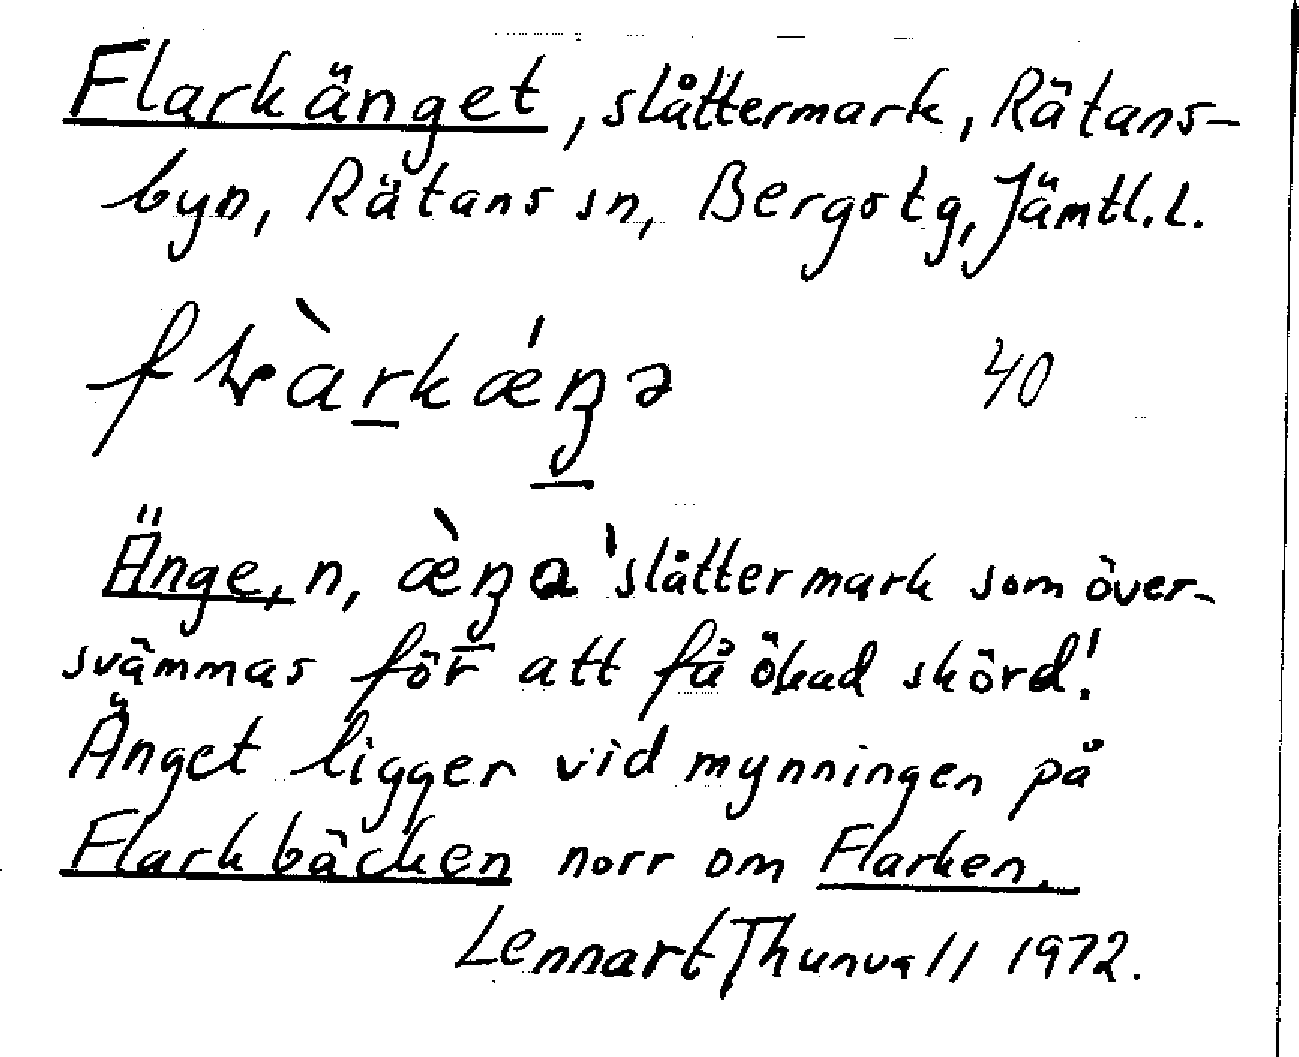 Flarkänget, slåttermark, Rätans-
byn, Rätans sn, Bergs tg, Jämtl. l.
40
Änge, n, 'slåttermark som över-
svämmas för att få ökad skörd!
Änget ligger vid mynningen på
Flarkbäcken norr om Flarken.
Lennart Thunvall 1972.